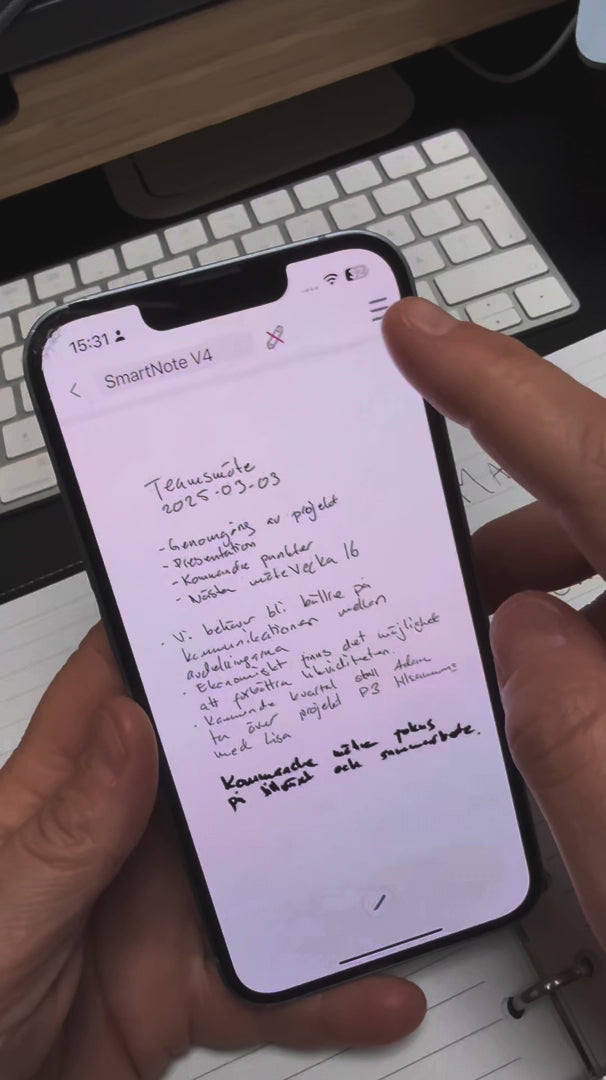 15:31
SmartNote V4
Teamsmöte
2025-03-03
- Genomgång av projekt
- Presentation
- Kommande punkter
- Nästa möte Vecka 16
· Vi behöver bli bättre på
kommunikationen mellan
avdelningarna
· Ekonomiskt finns det möjlighet
att förbättra likviditeten.
· Kommande kvartal skall Adam
ta över projekt P3 tillsammans
med Lisa
Kommande möte fokus
på tillväxt och samarbete.
MA